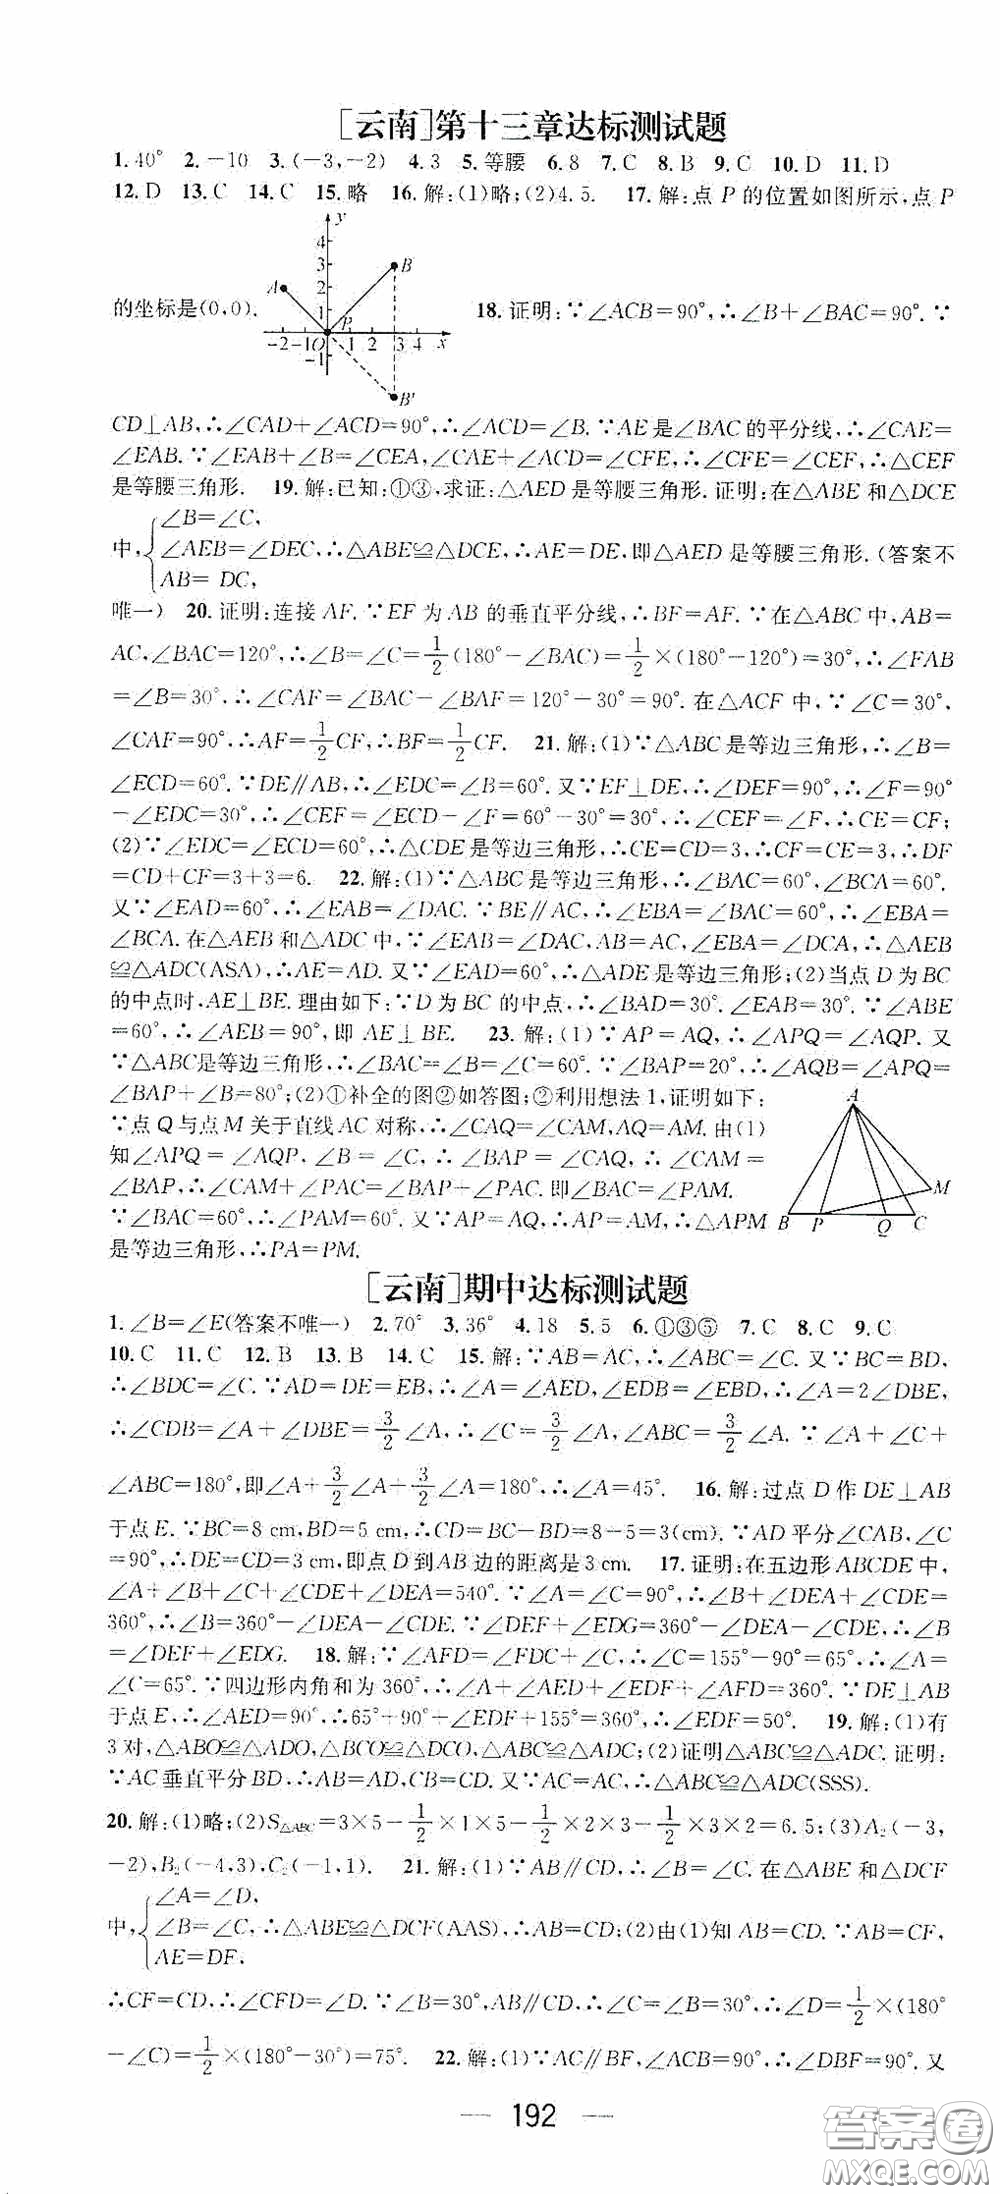 [云南]第十三章达标测试题
1.40° 2.-10 3.(-3,-2) 4.3 5.等腰 6.8 7.C 8.B 9.C 10.D 11.D
12.D 13.C 14.C 15.略 16.解:(1)略;(2)4.5. 17.解:点 P 的位置如图所示,点 P
的坐标是(0,0). 18.证明:∵∠ACB=90°,∴∠B+∠BAC=90°.∵
y
4
3
2
1
A
B
P
O
-2 -1 1 2 3 4 x
-1
B'
CD⊥AB,∴∠CAD+∠ACD=90°,∴∠ACD=∠B.∵AE是∠BAC的平分线,∴∠CAE=
∠EAB.∵∠EAB+∠B=∠CEA,∠CAE+∠ACD=∠CFE,∴∠CFE=∠CEF,∴△CEF
是等腰三角形. 19.解:已知:①③,求证:△AED是等腰三角形.证明:在△ABE和△DCE
∠B=∠C,
中,{∠AEB=∠DEC,∴△ABE≌△DCE,∴AE=DE,即△AED是等腰三角形.(答案不
AB=DC,
唯一) 20.证明:连接AF.∵EF为AB的垂直平分线,∴BF=AF.∵在△ABC中,AB=
AC,∠BAC=120°,∴∠B=∠C=1/2(180°-∠BAC)=1/2×(180°-120°)=30°,∴∠FAB
=∠B=30°,∴∠CAF=∠BAC-∠BAF=120°-30°=90°.在△ACF中,∵∠C=30°,
∠CAF=90°,∴AF=1/2CF,∴BF=1/2CF. 21.解:(1)∵△ABC是等边三角形,∴∠B=
∠ECD=60°.∵DE∥AB,∴∠EDC=∠B=60°.又∵EF⊥DE,∴∠DEF=90°,∴∠F=90°
-∠EDC=30°,∴∠CEF=∠ECD-∠F=60°-30°=30°,∴∠CEF=∠F,∴CE=CF;
(2)∵∠EDC=∠ECD=60°,∴△CDE是等边三角形,∴CE=CD=3,∴CF=CE=3,∴DF
=CD+CF=3+3=6. 22.解:(1)∵△ABC是等边三角形,∴∠BAC=60°,∠BCA=60°.
又∵∠EAD=60°,∴∠EAB=∠DAC.∵BE∥AC,∴∠EBA=∠BAC=60°,∴∠EBA=
∠BCA.在△AEB和△ADC中,∵∠EAB=∠DAC,AB=AC,∠EBA=∠DCA,∴△AEB
≌△ADC(ASA),∴AE=AD.又∵∠EAD=60°,∴△ADE是等边三角形;(2)当点D为BC
的中点时,AE⊥BE.理由如下:∵D为BC的中点,∴∠BAD=30°.∴∠EAB=30°.∵∠ABE
=60°,∴∠AEB=90°,即AE⊥BE. 23.解:(1)∵AP=AQ,∴∠APQ=∠AQP.又
∵△ABC是等边三角形,∴∠BAC=∠B=∠C=60°.∵∠BAP=20°,∴∠AQB=∠APQ=
∠BAP+∠B=80°;(2)①补全的图②如答图;②利用想法1,证明如下:
∵点Q与点M关于直线AC对称,∴∠CAQ=∠CAM,AQ=AM.由(1)
知∠APQ=∠AQP,∠B=∠C,∴∠BAP=∠CAQ,∴∠CAM=
∠BAP,∴∠CAM+∠PAC=∠BAP+∠PAC.即∠BAC=∠PAM.
∵∠BAC=60°,∴∠PAM=60°.又∵AP=AQ,∴AP=AM,∴△APM
是等边三角形,∴PA=PM.
A
M
B P Q C
[云南]期中达标测试题
1.∠B=∠E(答案不唯一) 2.70° 3.36° 4.18 5.5 6.①③⑤ 7.C 8.C 9.C
10.C 11.C 12.B 13.B 14.C 15.解:∵AB=AC,∴∠ABC=∠C.又∵BC=BD,
∴∠BDC=∠C.∵AD=DE=EB,∴∠A=∠AED,∠EDB=∠EBD,∴∠A=2∠DBE,
∴∠CDB=∠A+∠DBE=3/2∠A,∴∠C=3/2∠A,∠ABC=3/2∠A.∵∠A+∠C+
∠ABC=180°,即∠A+3/2∠A+3/2∠A=180°,∴∠A=45°. 16.解:过点D作DE⊥AB
于点E.∵BC=8 cm,BD=5 cm,∴CD=BC-BD=8-5=3(cm).∵AD平分∠CAB,∠C
=90°,∴DE=CD=3 cm,即点D到AB边的距离是3 cm. 17.证明:在五边形ABCDE中,
∠A+∠B+∠C+∠CDE+∠DEA=540°.∵∠A=∠C=90°,∴∠B+∠DEA+∠CDE=
360°,∴∠B=360°-∠DEA-∠CDE.∵∠DEF+∠EDG=360°-∠DEA-∠CDE,∴∠B
=∠DEF+∠EDG. 18.解:∵∠AFD=∠FDC+∠C,∴∠C=155°-90°=65°,∴∠A=
∠C=65°.∵四边形内角和为360°,∴∠A+∠AED+∠EDF+∠AFD=360°.∵DE⊥AB
于点E,∴∠AED=90°,∴65°+90°+∠EDF+155°=360°,∴∠EDF=50°. 19.解:(1)有
3对,△ABO≌△ADO,△BCO≌△DCO,△ABC≌△ADC;(2)证明△ABC≌△ADC.证明:
∵AC垂直平分BD,∴AB=AD,CB=CD.又∵AC=AC,∴△ABC≌△ADC(SSS).
20.解:(1)略;(2)S△ABC=3×5-1/2×1×5-1/2×2×3-1/2×3×2=6.5;(3)A₂(-3,
-2),B₂(-4,3),C₂(-1,1). 21.解:(1)∵AB∥CD,∴∠B=∠C.在△ABE和△DCF
∠A=∠D,
中,{∠B=∠C,∴△ABE≌△DCF(AAS),∴AB=CD;(2)由(1)知AB=CD.∵AB=CF,
AE=DF,
∴CF=CD,∴∠CFD=∠D.∵∠B=30°,AB∥CD,∴∠C=∠B=30°,∴∠D=1/2×(180°
-∠C)=1/2×(180°-30°)=75°. 22.解:(1)∵AC∥BF,∠ACB=90°,∴∠DBF=90°.又
— 192 —
答案圈
MXQE.COM